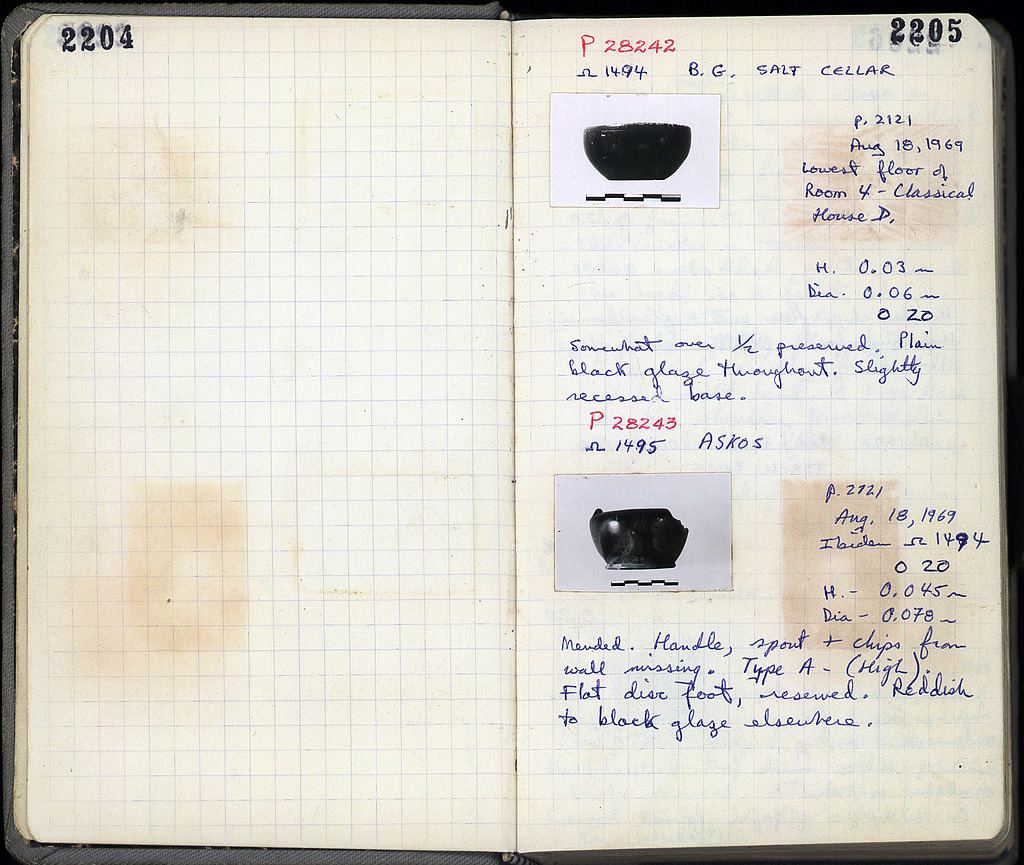 2204
2205
P 28242
Ω 1494 B.G. SALT CELLAR
p. 2121
Aug 18, 1969
Lowest floor of
Room 4 - Classical
House D.
H. 0.03 m
Dia. 0.06 m
O 20
Somewhat over 1/2 preserved. Plain
black glaze throughout. Slightly
recessed base.
P 28243
Ω 1495 ASKOS
p. 2121
Aug. 18, 1969
Ibidem Ω 1494
O 20
H. - 0.045 m
Dia - 0.078 m
Mended. Handle, spout + chips from
wall missing. Type A - (High).
Flat disc foot, reserved. Reddish
to black glaze elsewhere.